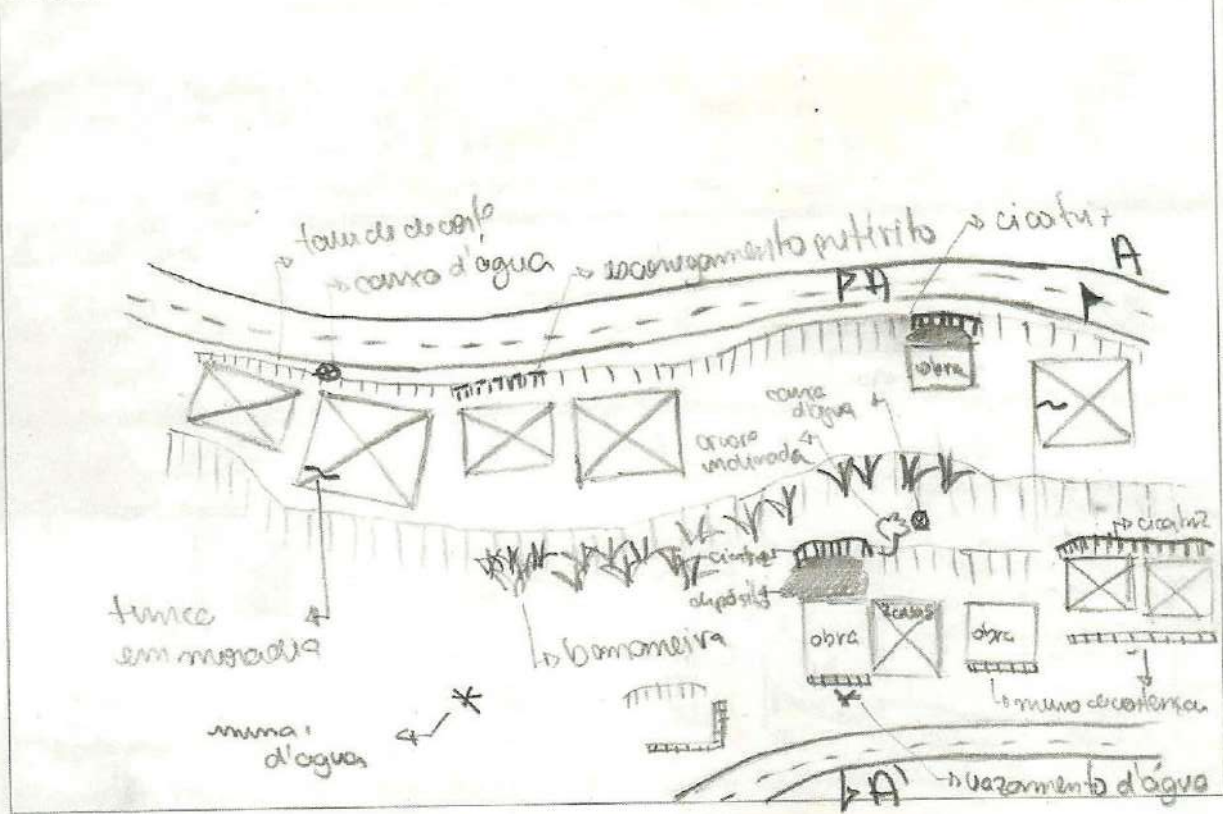 talude de corte
caixa d'água
escorregamento pretérito
cicatriz
A
A
obra
caixa
d'água
árvore
inclinada
cicatriz
cicatriz
depósito
2 casas
obra
obra
trinca
em moradia
bananeira
muro de contenção
mina
d'água
vazamento d'água
A'